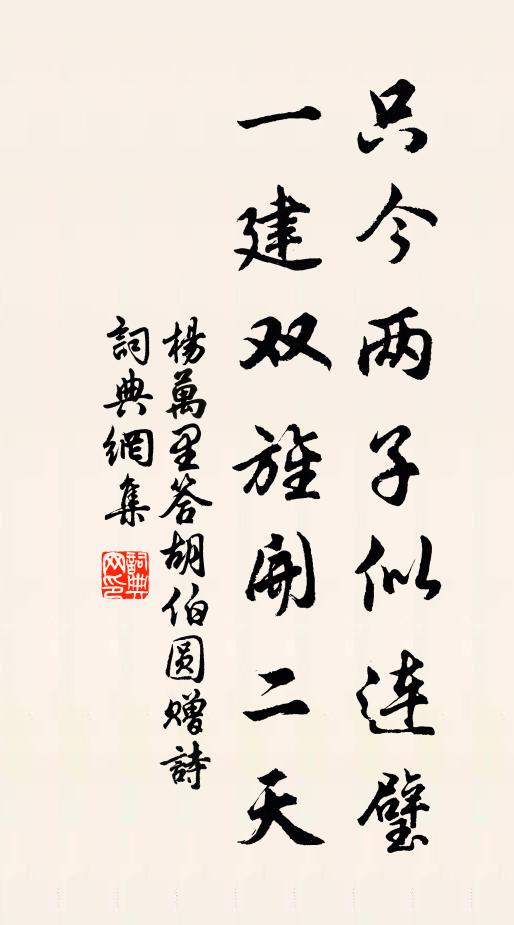 只今两子似连璧
一建双旌開二天
楊萬里答胡伯圆赠詩
詞典網集
詞典网印